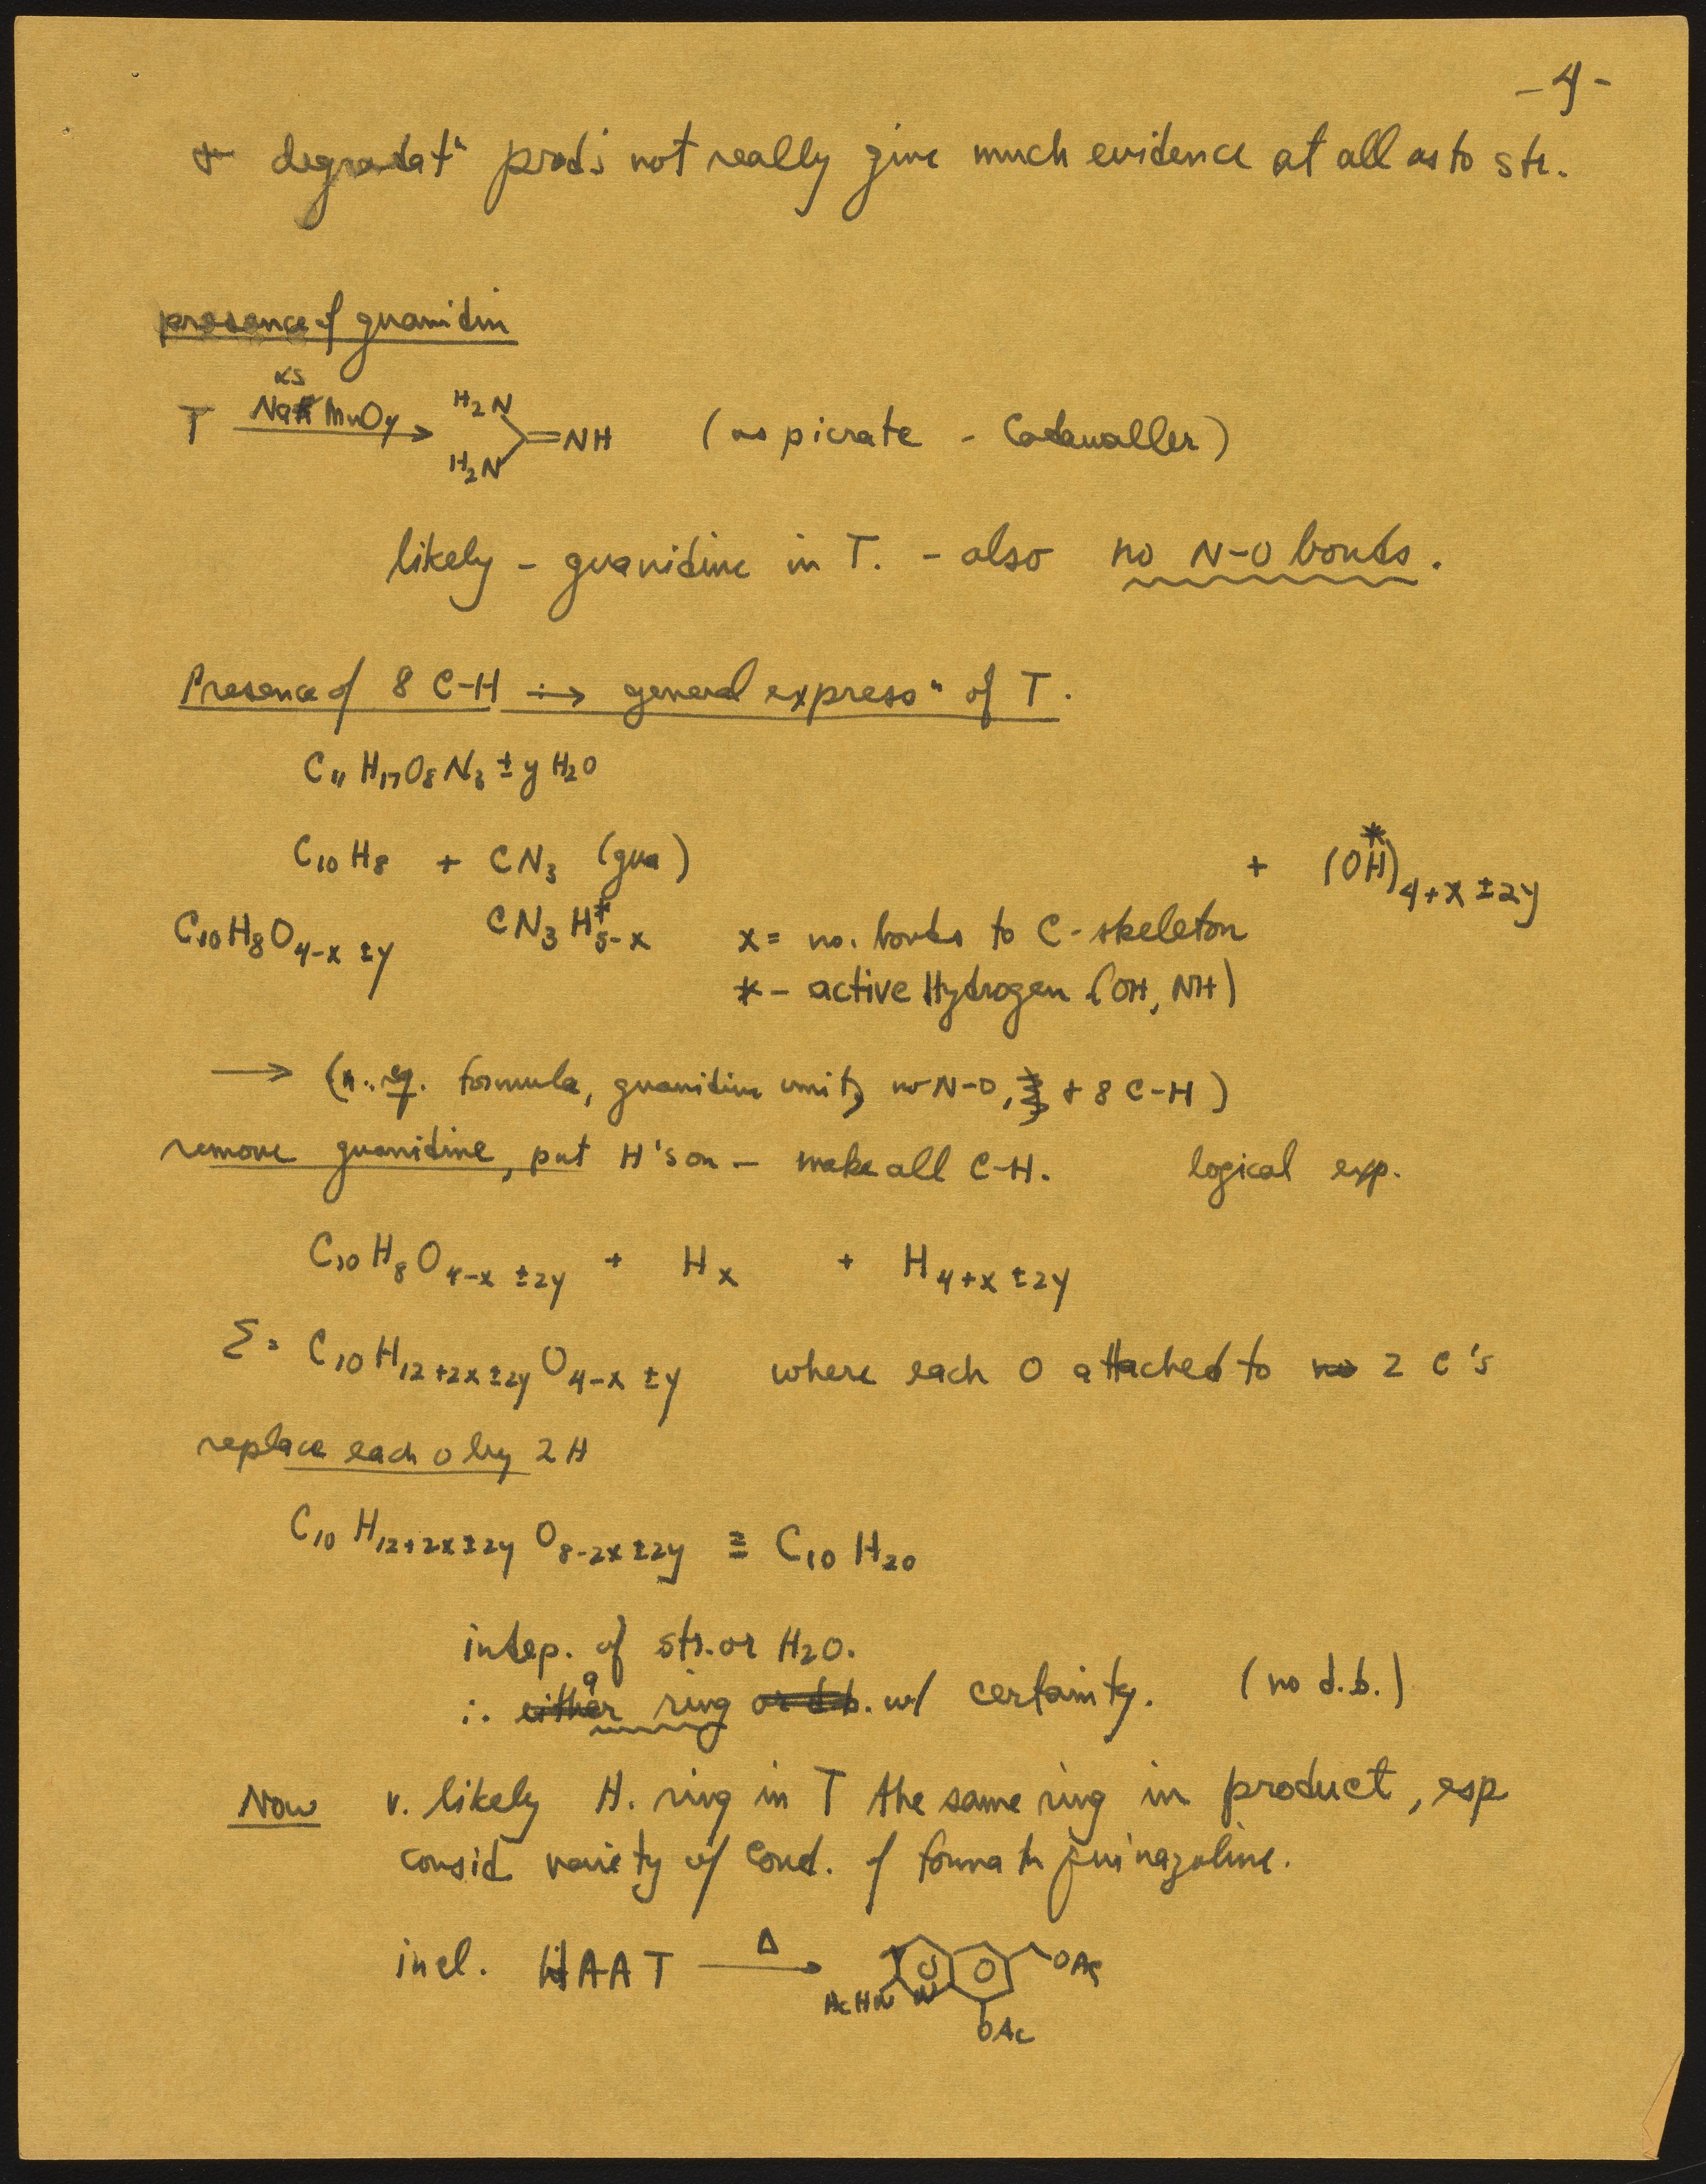 - 4 -
+ degradatⁿ prods not really give much evidence at all as to str.
presence of guanidin
xs
T NaMnO4 → H2N H2N =NH (as picrate - Cadawaller)
likely - guanidine in T. - also no N-O bonds.
Presence of 8 C-H ∴→ general expressⁿ of T.
C11 H17 O8 N3 ± y H2O
C10 H8 + CN3 (gua) + (OH*)4+x±2y
C10H8O4-x ±y CN3 H*5-x x = no. bonds to C-skeleton
* - active Hydrogen (OH, NH)
→ (n. eq. formula, guanidine unit, no N-O, + 8 C-H)
remove guanidine, put H's on - make all C-H. logical exp.
C10 H8 O4-x ±2y + Hx + H4+x ±2y
Σ = C10 H12+2x±2y O4-x ±y where each O attached to no 2 C's
replace each O by 2 H
C10 H12+2x±2y O8-2x±2y ≡ C10 H20
indep. of str. or H2O.
∴ either a ring or d.b. w/ certainty. (no d.b.)
Now v. likely H. ring in T the same ring in product, esp
consid variety of cond. of formatn quinazoline.
incl. HAAT Δ → AcHN N OAc OAc